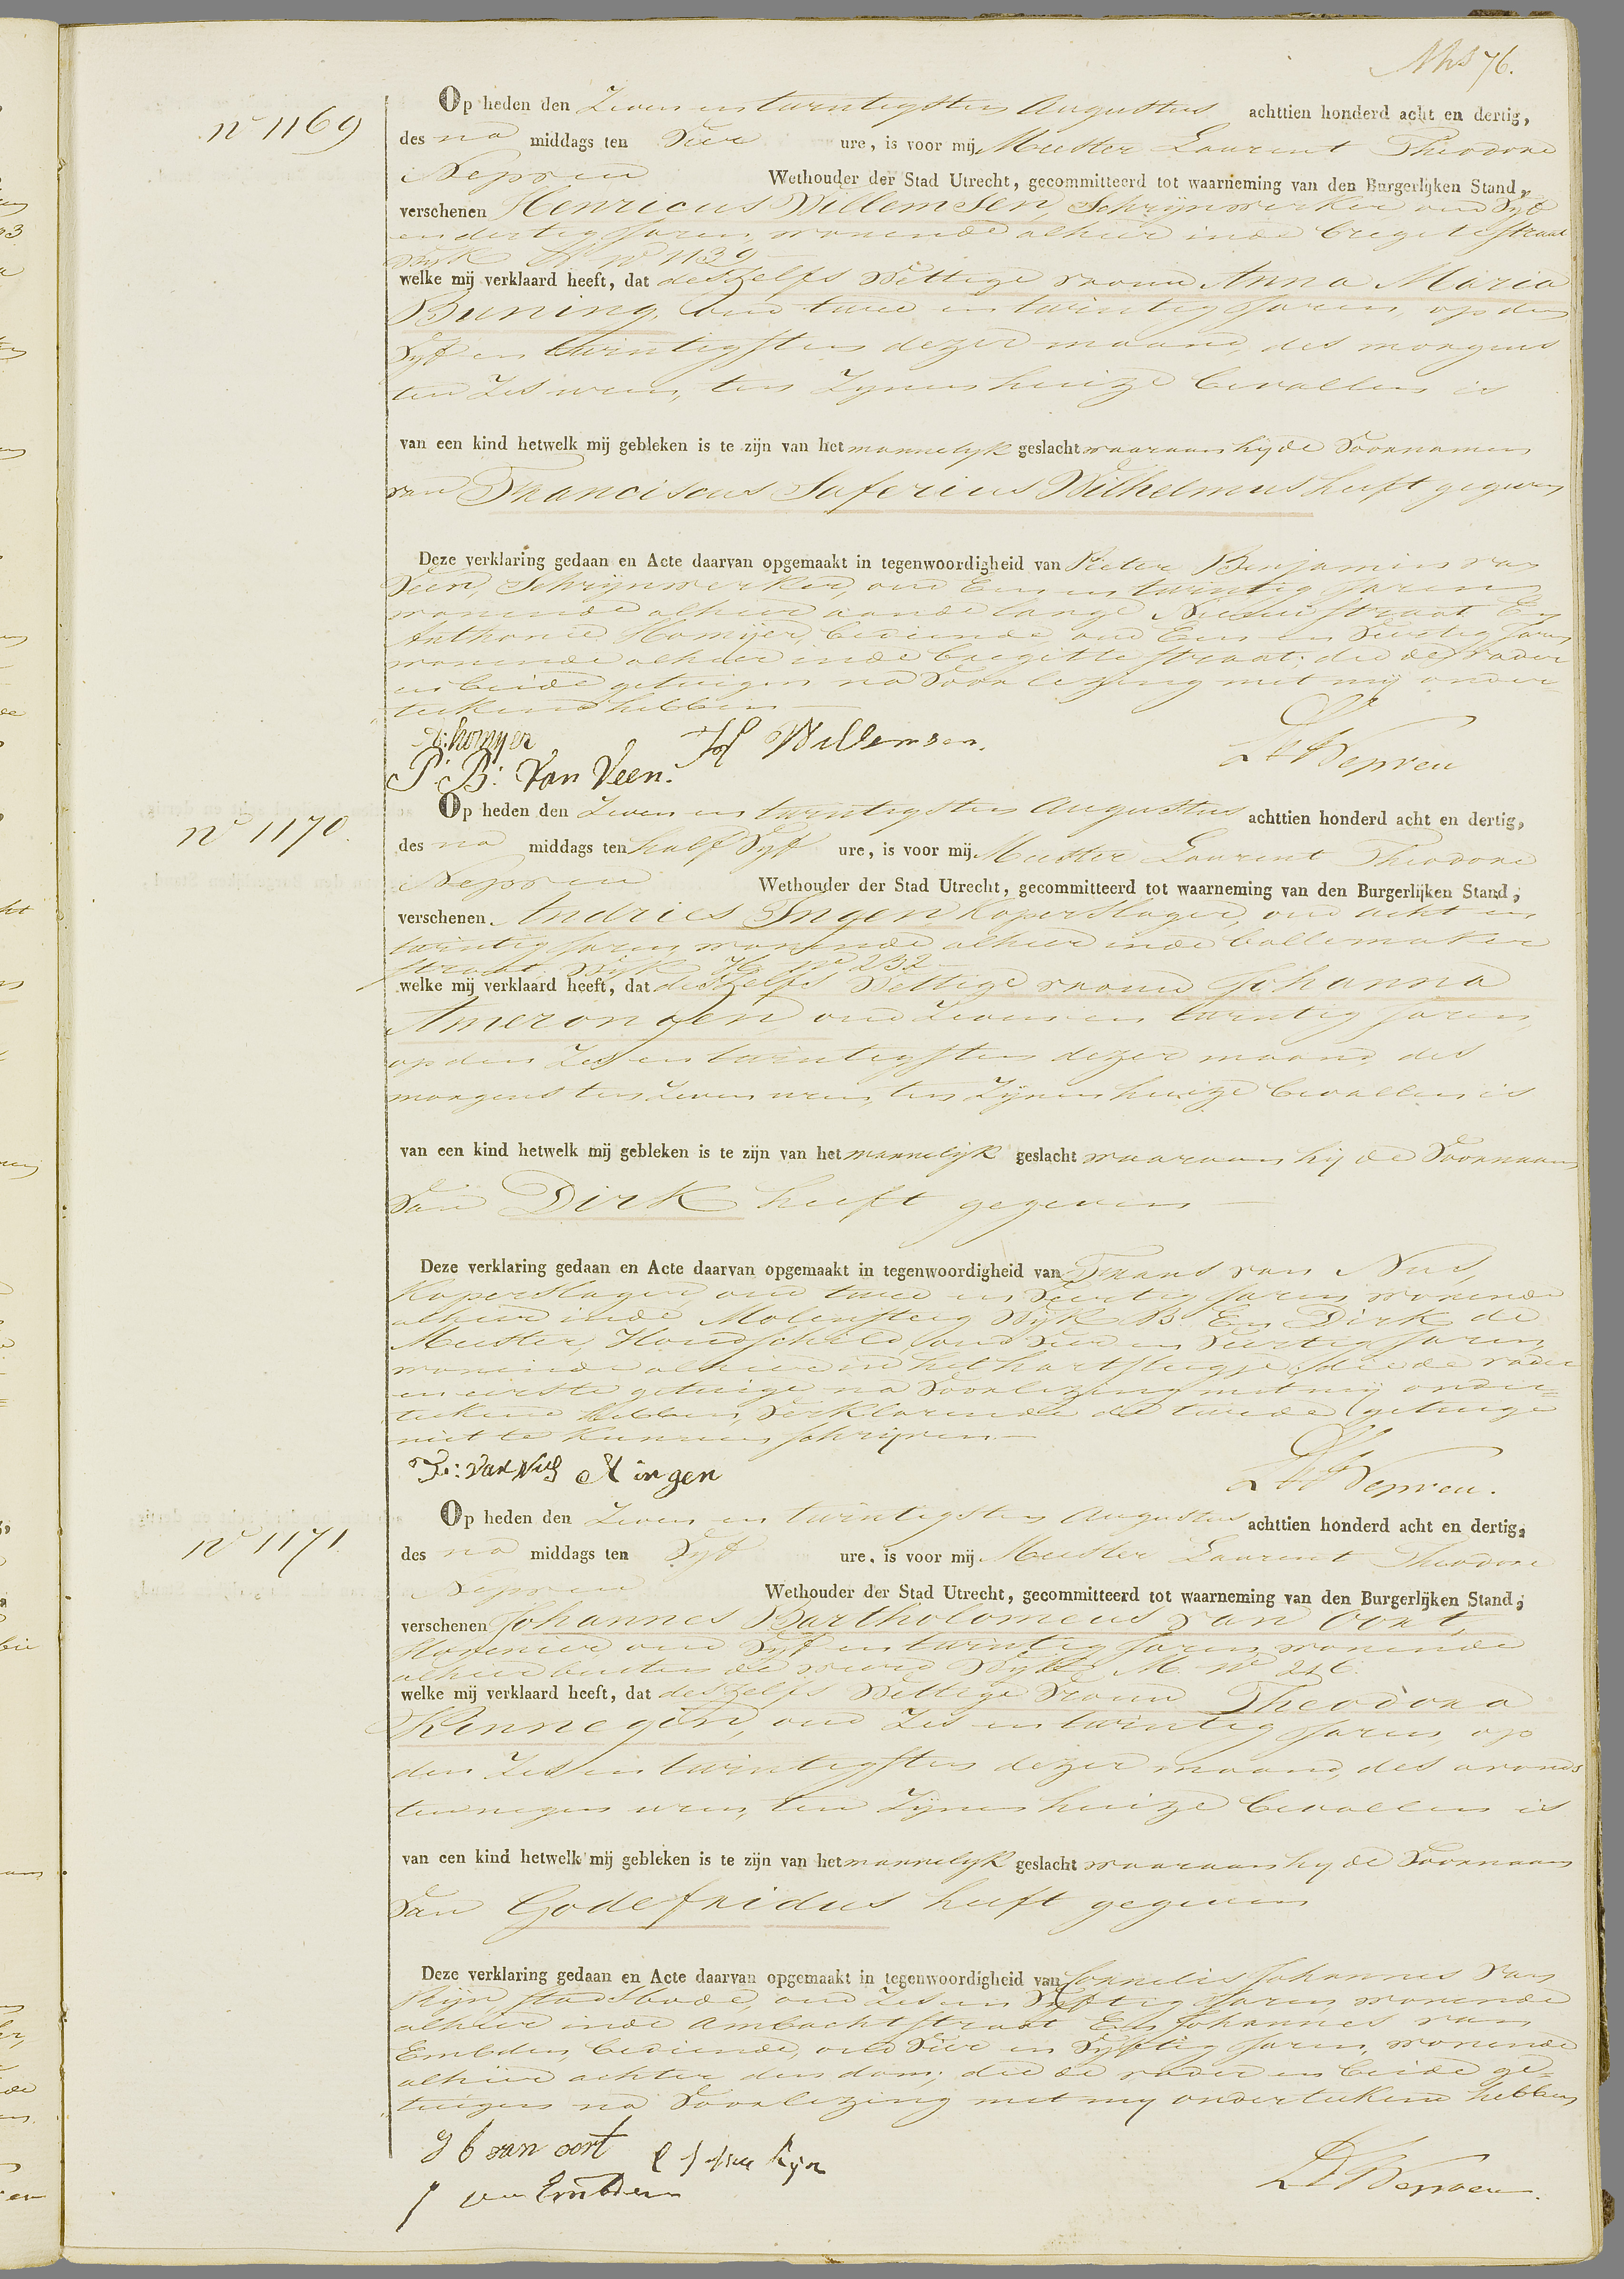 76.
no 1169
Op heden den Zeven en twintigsten Augustus achttien honderd acht en dertig,
des na middags ten Vier ure, is voor mij Meester Laurent Theodore
Nepveu Wethouder der Stad Utrecht, gecommitteerd tot waarneming van den Burgerlijken Stand,
verschenen Henricus Willemsen, Schrijnwerker oud Vijf
en dertig Jaren, wonende alhier in de Bregitte straat
Wijk no 1139
welke mij verklaard heeft, dat deszelfs Wettige vrouw Anna Maria
Buning, oud twee en twintig Jaren, op den
Vijf en twintigsten dezer maand, des morgens
ten Zes uren, ten Zynen huize bevallen is
van een kind hetwelk mij gebleken is te zijn van het mannelijk geslacht waaraan hij de Voornamen
van Franciscus Saferius Wilhelmus heeft gegeven
Deze verklaring gedaan en Acte daarvan opgemaakt in tegenwoordigheid van Pieter Benjamin van
Veen, Schrijnwerker, oud Een en twintig Jaren
wonende alhier aan de lange Nieuwstraat En
Anthonie Homijer, bediende oud Een en Veertig Jaren
wonende alhier in de Bregitte straat; die de vader
en beide getuigen na Voorlezing met mij onder=
teekend hebben
A: homyer H Willemsen.
P: B: Van Veen. LT Nepveu
no 1170.
Op heden den Zeven en twintigsten Augustus achttien honderd acht en dertig,
des na middags ten half Vijf ure, is voor mij Meester Laurent Theodore
Nepveu Wethouder der Stad Utrecht, gecommitteerd tot waarneming van den Burgerlijken Stand,
verschenen. Andries Ingen, Koperslager, oud acht en
twintig Jaren, wonende alhier in de Ballemaker
straat Wijk H no 232
welke mij verklaard heeft, dat deszelfs Wettige vrouw Johanna
Amerongen oud Zeven en twintig Jaren,
op den Zes en twintigsten dezer maand, des
morgens ten Zeven uren, ten Zijnen huize bevallen is
van een kind hetwelk mij gebleken is te zijn van het mannelijk geslacht waaraan hij de Voornaam
Van Dirk heeft gegeven
Deze verklaring gedaan en Acte daarvan opgemaakt in tegenwoordigheid van Frans van Nus,
Koperslager, oud twee en Veertig Jaren, wonende
alhier in de Molensteeg Wijk B. En Dirk de
Meester, oud Vier en Veertig Jaren,
wonende alhier in het hartsteegje; die de vader
en eerste getuige na Voorlezing met mij onder=
teekend hebben, Verklarende de tweede getuige
niet te kunnen schrijven
F: van Nus A ingen LT Nepveu.
no 1171.
Op heden den Zeven en twintigsten Augustus achttien honderd acht en dertig,
des na middags ten Vijf ure, is voor mij Meester Laurent Theodore
Nepveu Wethouder der Stad Utrecht, gecommitteerd tot waarneming van den Burgerlijken Stand,
verschenen Johannes Bartholomeus van Oort,
Hovenier, oud Vijf en twintig Jaren, wonende
alhier buiten de Weerd Wijk M. no 246.
welke mij verklaard heeft, dat deszelfs Wettige Vrouw Theodora
Rennegom, oud Zes en twintig Jaren, op
den Zes en twintigsten dezer maand, des avonds
ten negen uren, ten Zijnen huize bevallen is
van een kind hetwelk mij gebleken is te zijn van het mannelijk geslacht waaraan hij de Voornaam
Van Godefridus heeft gegeven
Deze verklaring gedaan en Acte daarvan opgemaakt in tegenwoordigheid van Cornelis Johannes van
Rijn, stadsbode, oud Zes en Vijftig Jaren, wonende
alhier in de Ambachtstraat En Johannes van
Embden, bediende, oud Vier en Vijftig Jaren, wonende
alhier achter den dom; die de vader en beide ge=
tuigen na Voorlezing met mij onderteekend hebben
J b van oort C J van Rijn
J van Embden LT Nepveu.